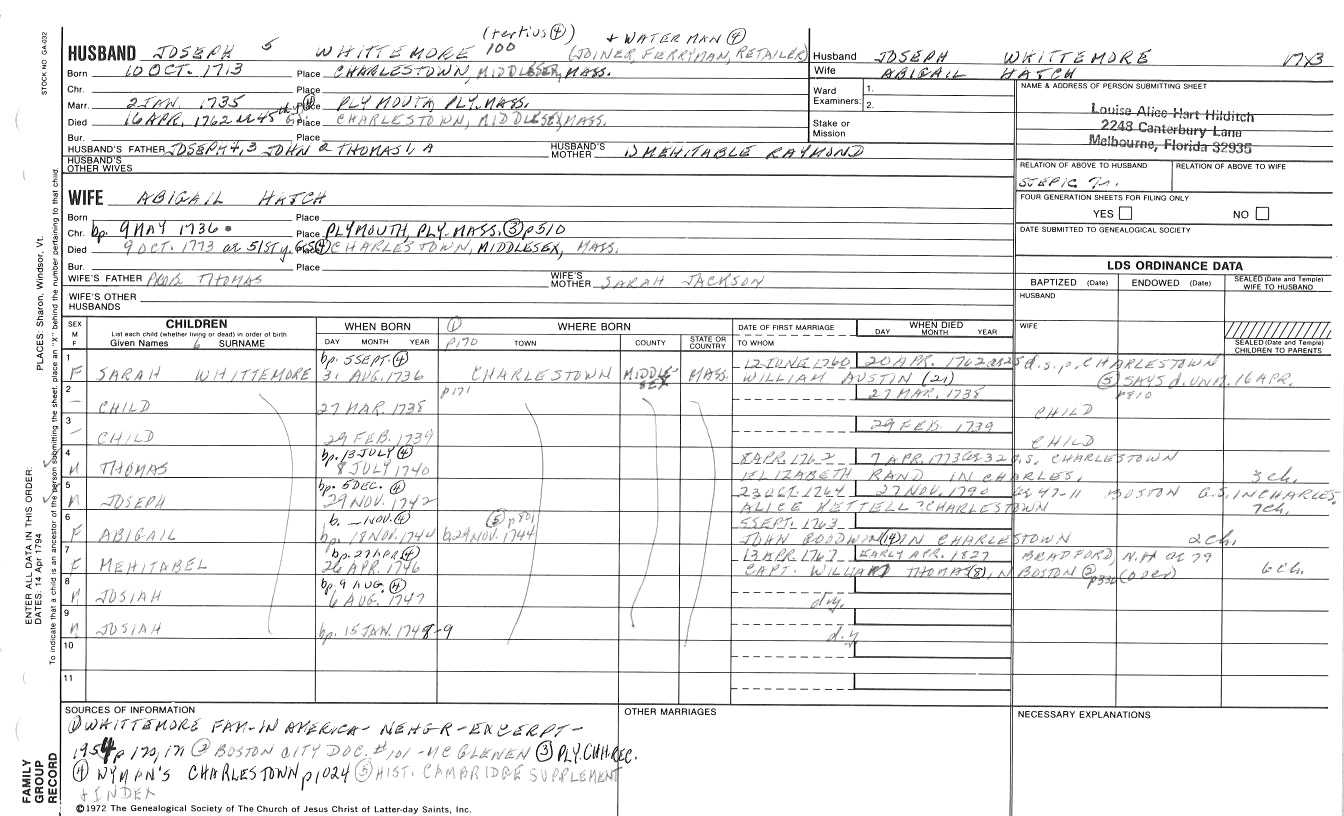 STOCK NO. GA-032
(tertius ④) + WATERMAN ④
HUSBAND JOSEPH 5 WHITTEMORE 100 (JOINER, FERRYMAN, RETAILER)
Born 10 OCT. 1713 Place CHARLESTOWN, MIDDLESEX, MASS.
Chr. Place
Marr. 2 JAN. 1735 Place PLYMOUTH, PLY. MASS.
Died 16 APR. 1762 Place CHARLESTOWN, MIDDLESEX, MASS.
Bur. Place
HUSBAND'S FATHER JOSEPH 4, 3 JOHN 2 THOMAS 1, A HUSBAND'S MOTHER MEHITABLE RAYMOND
HUSBAND'S OTHER WIVES
WIFE ABIGAIL HATCH
Born Place
Chr. bp. 9 MAY 1736 Place PLYMOUTH, PLY. MASS. ③ p510
Died 9 OCT. 1773 Place CHARLESTOWN, MIDDLESEX, MASS.
Bur. Place
WIFE'S FATHER PROB. THOMAS WIFE'S MOTHER SARAH JACKSON
WIFE'S OTHER HUSBANDS
Husband JOSEPH WHITTEMORE
Wife ABIGAIL HATCH
Ward Examiners: 1.
2.
Stake or Mission
NAME & ADDRESS OF PERSON SUBMITTING SHEET
Louise Alice Hart Hilditch
2248 Canterbury Lane
Melbourne, Florida 32935
RELATION OF ABOVE TO HUSBAND RELATION OF ABOVE TO WIFE
FOUR GENERATION SHEETS FOR FILING ONLY
YES NO
DATE SUBMITTED TO GENEALOGICAL SOCIETY
LDS ORDINANCE DATA
BAPTIZED (Date) ENDOWED (Date) SEALED (Date and Temple) WIFE TO HUSBAND
HUSBAND
WIFE
SEALED (Date and Temple) CHILDREN TO PARENTS
SEX M F
CHILDREN
List each child (whether living or dead) in order of birth
Given Names 6 SURNAME
WHEN BORN
DAY MONTH YEAR
① p170
WHERE BORN
TOWN COUNTY STATE OR COUNTRY
DATE OF FIRST MARRIAGE
TO WHOM
WHEN DIED
DAY MONTH YEAR
1 bp. 5 SEPT. ④ 12 JUNE 1760 20 APR. 1762 d.s.p. CHARLESTOWN
F SARAH WHITTEMORE 31 AUG. 1736 CHARLESTOWN MIDDLESEX MASS. WILLIAM AUSTIN (21) ⑤ SAYS d. UNM. 16 APR.
p810
2 p171 27 MAR. 1738
— CHILD 27 MAR. 1738 CHILD
3 29 FEB. 1739
— CHILD 29 FEB. 1739 CHILD
4 bp. 13 JULY ④ 8 APR. 1762 7 APR. 1773 G.S. CHARLESTOWN
M THOMAS 8 JULY 1740 ELIZABETH RAND IN CHARLES. 3 ch.
5 bp. 5 DEC. ④ 23 OCT. 1764 27 NOV. 1790 ae 47-11 BOSTON G.S. IN CHARLES.
M JOSEPH 29 NOV. 1742 ALICE KETTELL CHARLESTOWN 7 ch.
6 b. — NOV. ④ ⑤ p801 5 SEPT. 1763
F ABIGAIL bp. 18 NOV. 1744 b. 29 NOV. 1744 JOHN GOODWIN (14) IN CHARLESTOWN 2 ch.
7 bp. 27 APR ④ 13 APR. 1767 EARLY APR. 1827 BRADFORD, N.H ae 79
F MEHITABEL 26 APR. 1746 CAPT. WILLIAM THOMAS (8) IN BOSTON ② p336 6 ch.
8 bp. 9 AUG. ④
M JOSIAH 6 AUG. 1747 d.y.
9
M JOSIAH bp. 15 JAN. 1748-9 d.y
10
11
SOURCES OF INFORMATION
① WHITTEMORE FAM. IN AMERICA - NEHGR - EXCERPT -
1954 p 170, 171 ② BOSTON CITY DOC. #101 - MC GLENEN ③ PLY. CH. REC.
④ WYMAN'S CHARLESTOWN p1024 ⑤ HIST. CAMBRIDGE SUPPLEMENT
+ INDEX
OTHER MARRIAGES
NECESSARY EXPLANATIONS
©1972 The Genealogical Society of The Church of Jesus Christ of Latter-day Saints, Inc.
FAMILY GROUP RECORD
ENTER ALL DATA IN THIS ORDER:
DATES: 14 Apr 1794
PLACES: Sharon, Windsor, Vt.
To indicate that a child is an ancestor of the person submitting the sheet, place an "X" behind the number pertaining to that child.